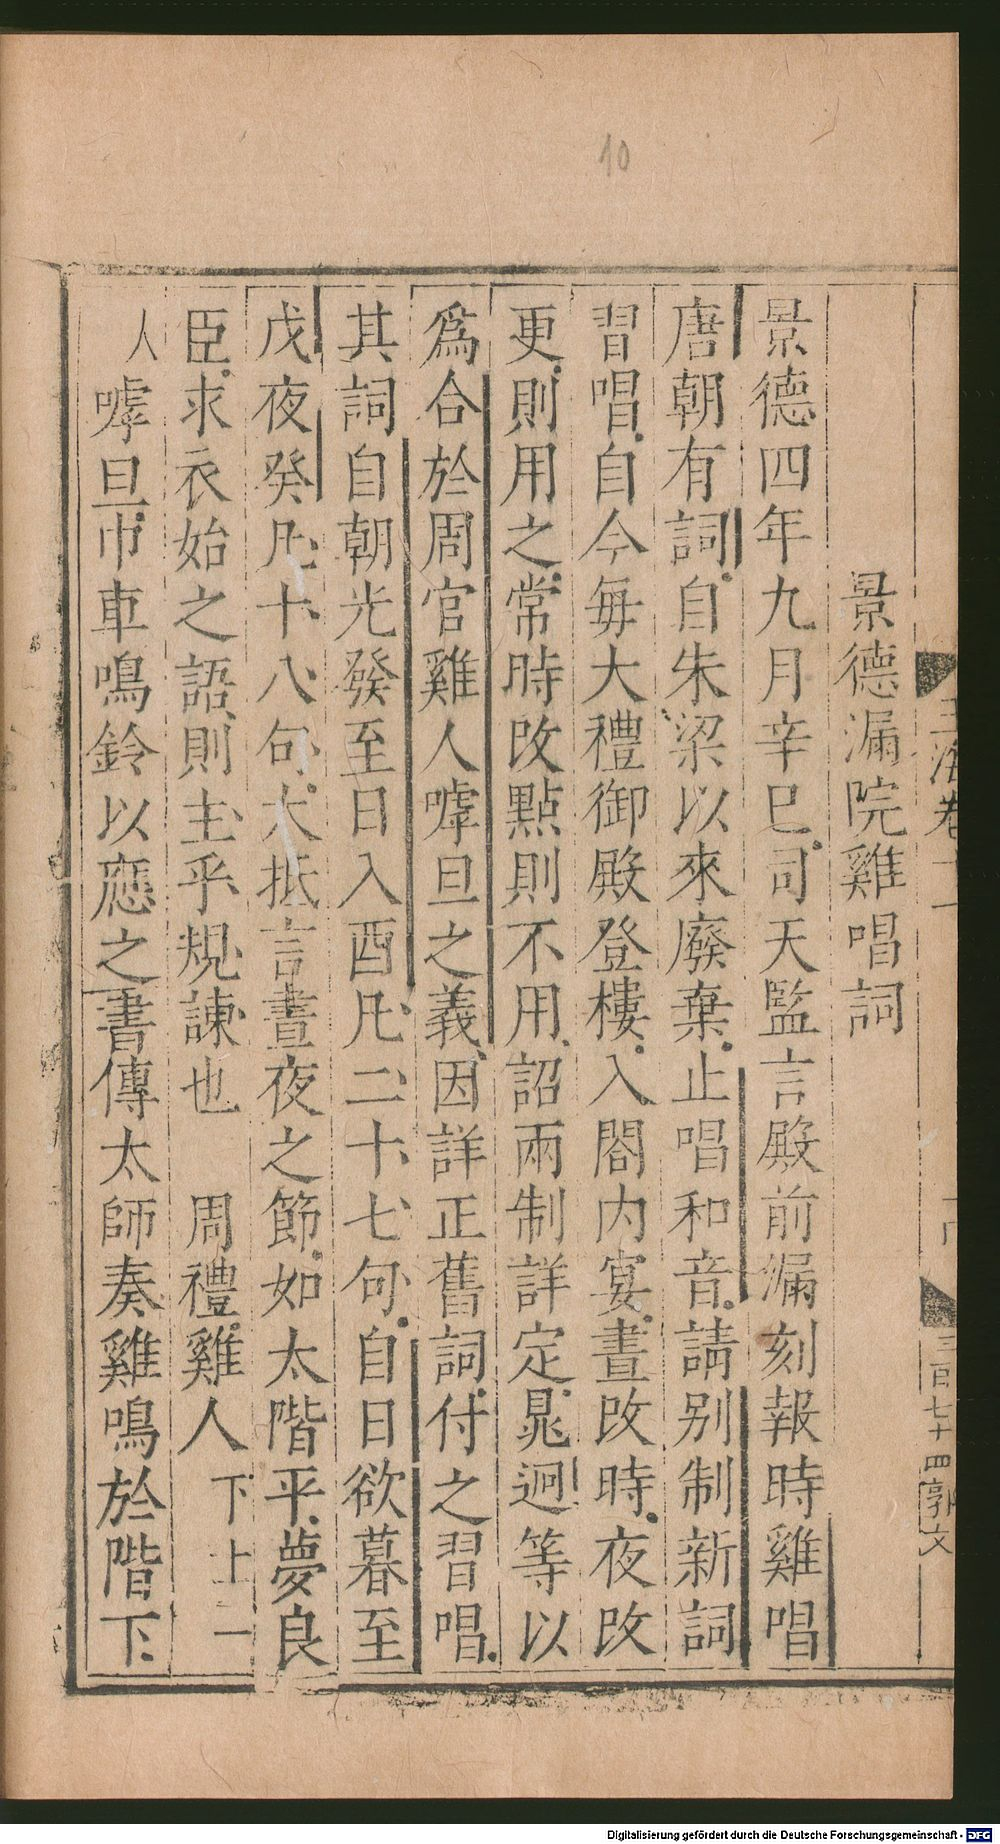 10
玉海卷十一
三百七十四
郭文
景德漏院雞唱詞
景德四年九月辛巳司天監言殿前漏刻報時雞唱
唐朝有詞自朱梁以來廢棄止唱和音請別制新詞
習唱自今每大禮御殿登樓入閤內宴晝改時夜改
更則用之常時改點則不用詔兩制詳定晁迥等以
爲合於周官雞人嘑旦之義因詳正舊詞付之習唱
其詞自朝光發至日入酉凡二十七句自日欲暮至
戊夜癸凡十八句大抵言晝夜之節如太階平夢良
臣求衣始之語則主乎規諫也　周禮雞人下上二
人嘑旦巾車鳴鈴以應之書傳太師奏雞鳴於階下
Digitalisierung gefördert durch die Deutsche Forschungsgemeinschaft - DFG